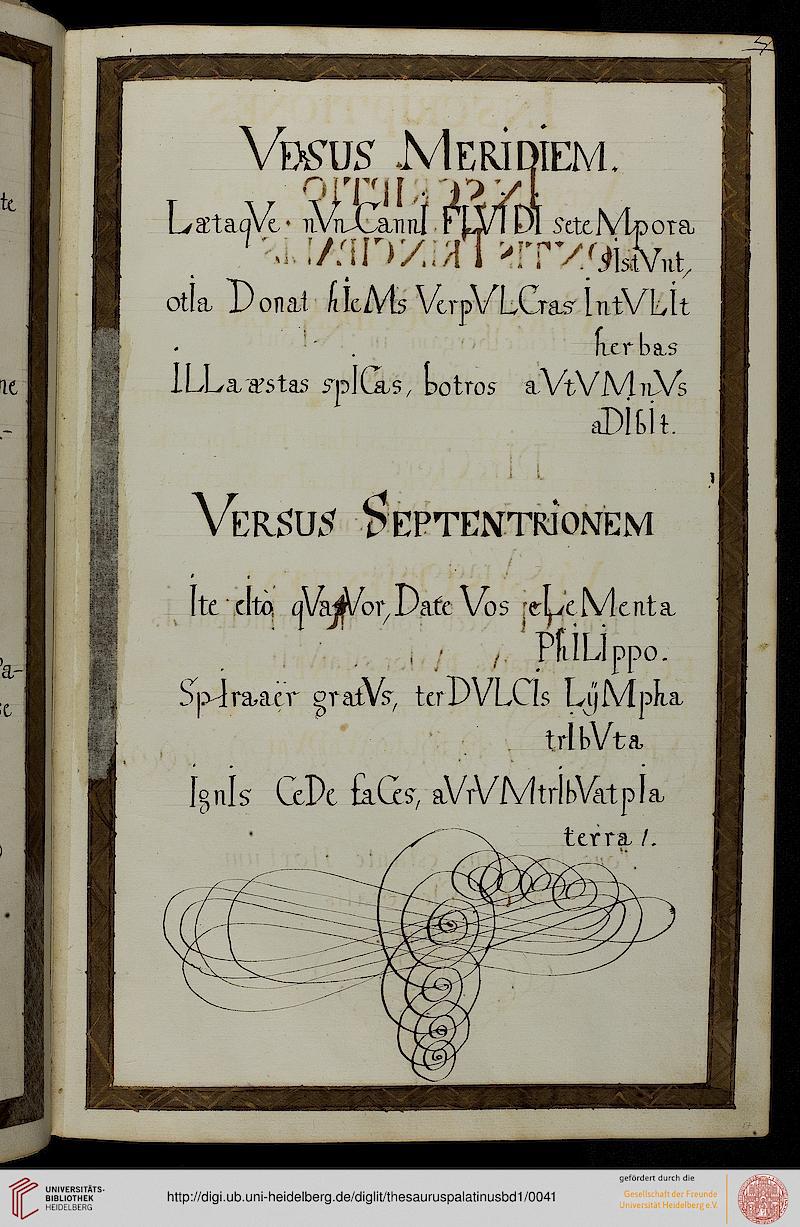 VERSUS MERIDIEM.
LætaqVe nVnCannI FLVIDI seteMpora
sIstVnt,
otIa Donat hIeMs VerpVLCras IntVLIt
herbas
ILLa æstas spICas, botros aVtVMnVs
aDIbIt.
VERSUS SEPTENTRIONEM
Ite cIto qVatVor, Date Vos eLeMenta
PhILIppo.
SpIra aër gratVs, ter DVLCIs LijMpha
trIbVta
IgnIs CeDe faCes, aVrVMtrIbVat pIa
terra /.
UNIVERSITÄTS-
BIBLIOTHEK
HEIDELBERG
http://digi.ub.uni-heidelberg.de/diglit/thesauruspalatinusbd1/0041
gefördert durch die
Gesellschaft der Freunde
Universität Heidelberg e.V.